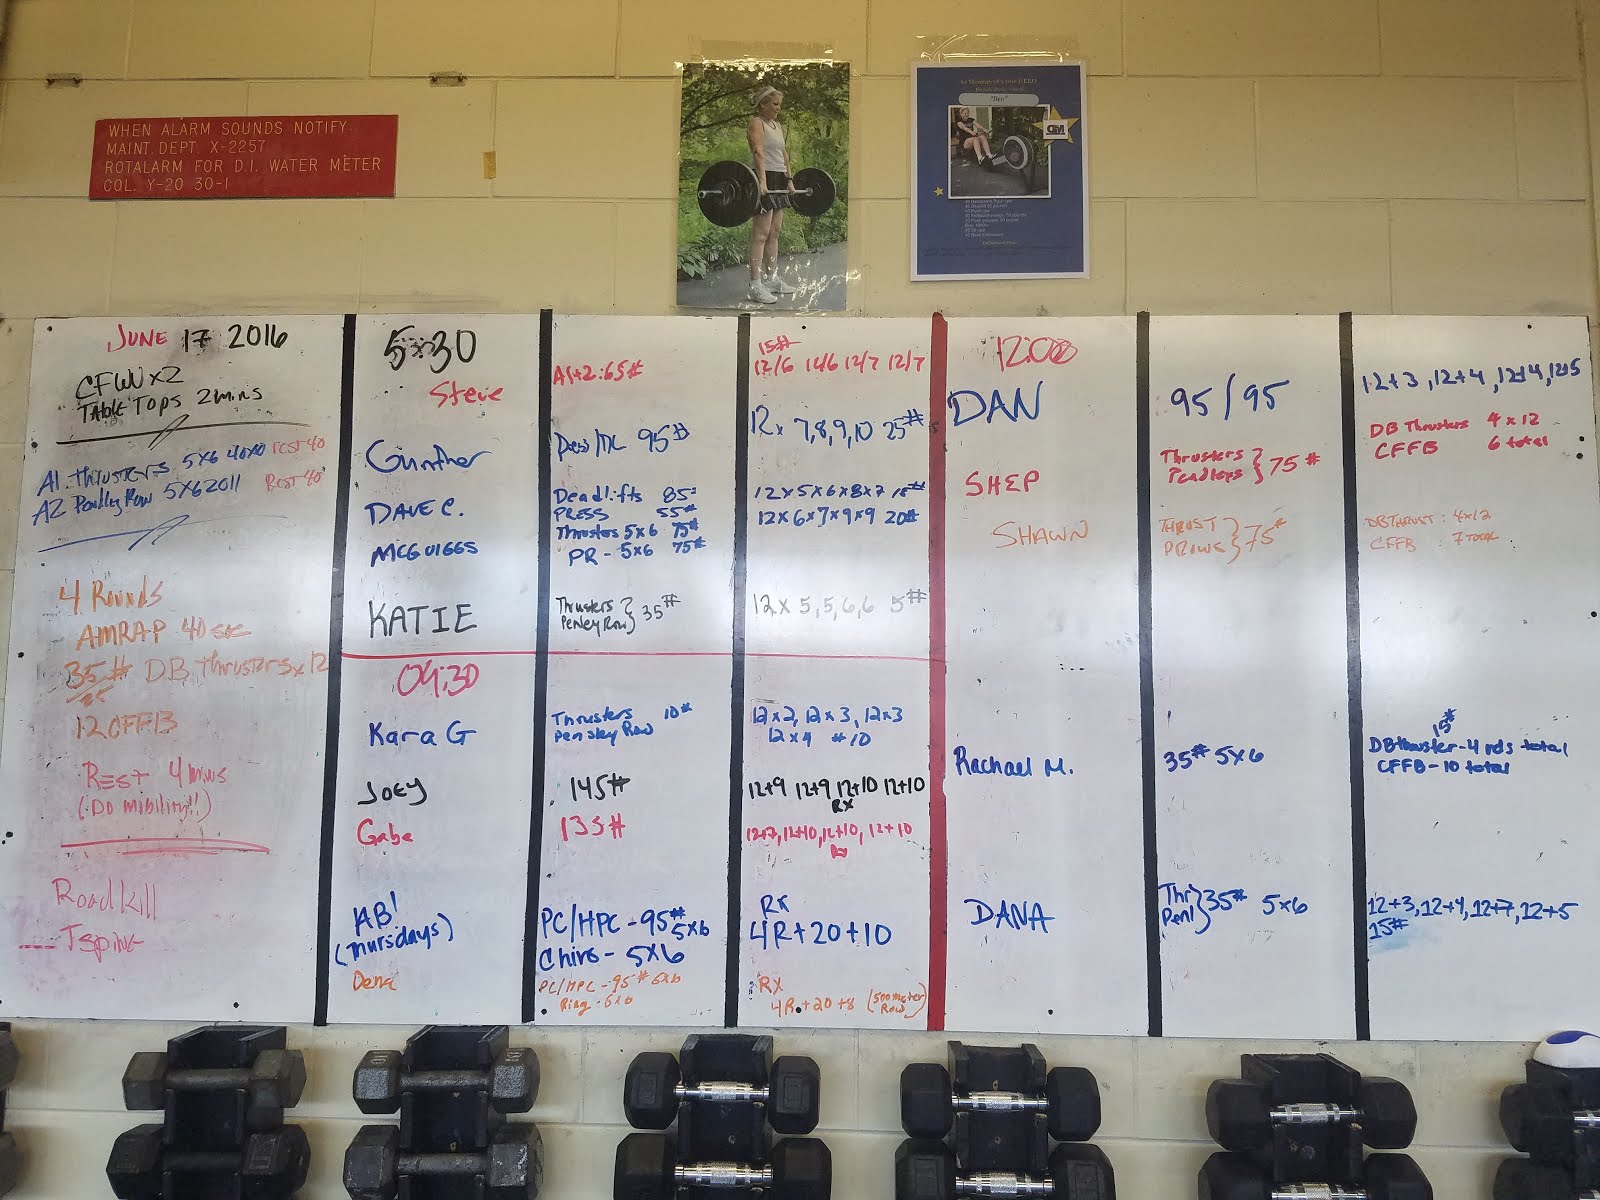 WHEN ALARM SOUNDS NOTIFY
MAINT. DEPT. X-2257
ROTALARM FOR D.I. WATER METER
COL. Y-20 30-1
In Memory of a true HERO
"Bev"
JUNE 17 2016
CFWU x2
TABLE TOPS 2 mins
A1 Thrusters 5x6 40x0 rest 40
A2 Pendley Row 5x6 2011 Rest 80
4 Rounds
AMRAP 40 sec
35# DB Thrusters x 12
12 CFFB
REST 4 mins
(Do mobility!!)
Roadkill
Tspine
5:30
Steve
A1+2: 65#
15#
12/6 12/6 12/7 12/7
Gunther
Press/DL 95#
Rx 7,8,9,10 25#
DAVE C.
Deadlifts 85#
PRESS 55#
12x5x6x8x7 15#
MCGUIGGS
Thrusters 5x6 75#
PR - 5x6 75#
12x6x7x9x9 20#
KATIE
Thrusters } 35#
Penley Row
12x 5,5,6,6 5#
09:30
Kara G
Thrusters 10#
Pensley Row
12x2, 12x3, 12x3
12x4 #10
JOEY
145#
12+9 12+9 12+10 12+10
RX
Gabe
135#
12+7, 12+10, 12+10, 12+10
Rx
AB!
(Thursdays)
PC/HPC - 95# 5x6
Chins - 5x6
RX
4R+20+10
Dena
PC/HPC - 95# 5x6
Ring - 5x6
RX
4R+20+8 (500 meter Row)
12:00
DAN
95/95
12+3, 12+4, 12+4, 12+5
SHEP
Thrusters } 75#
Pendleys
DB Thrusters 4 x 12
CFFB 6 total
SHAWN
THRUST } 75#
PROWS
DB THRUST : 4x12
CFFB : 7 TOTAL
Rachael M.
35# 5x6
15#
DB thruster - 4 rds total
CFFB - 10 total
DANA
Thr } 35# 5x6
Penl
12+3, 12+4, 12+7, 12+5
15#